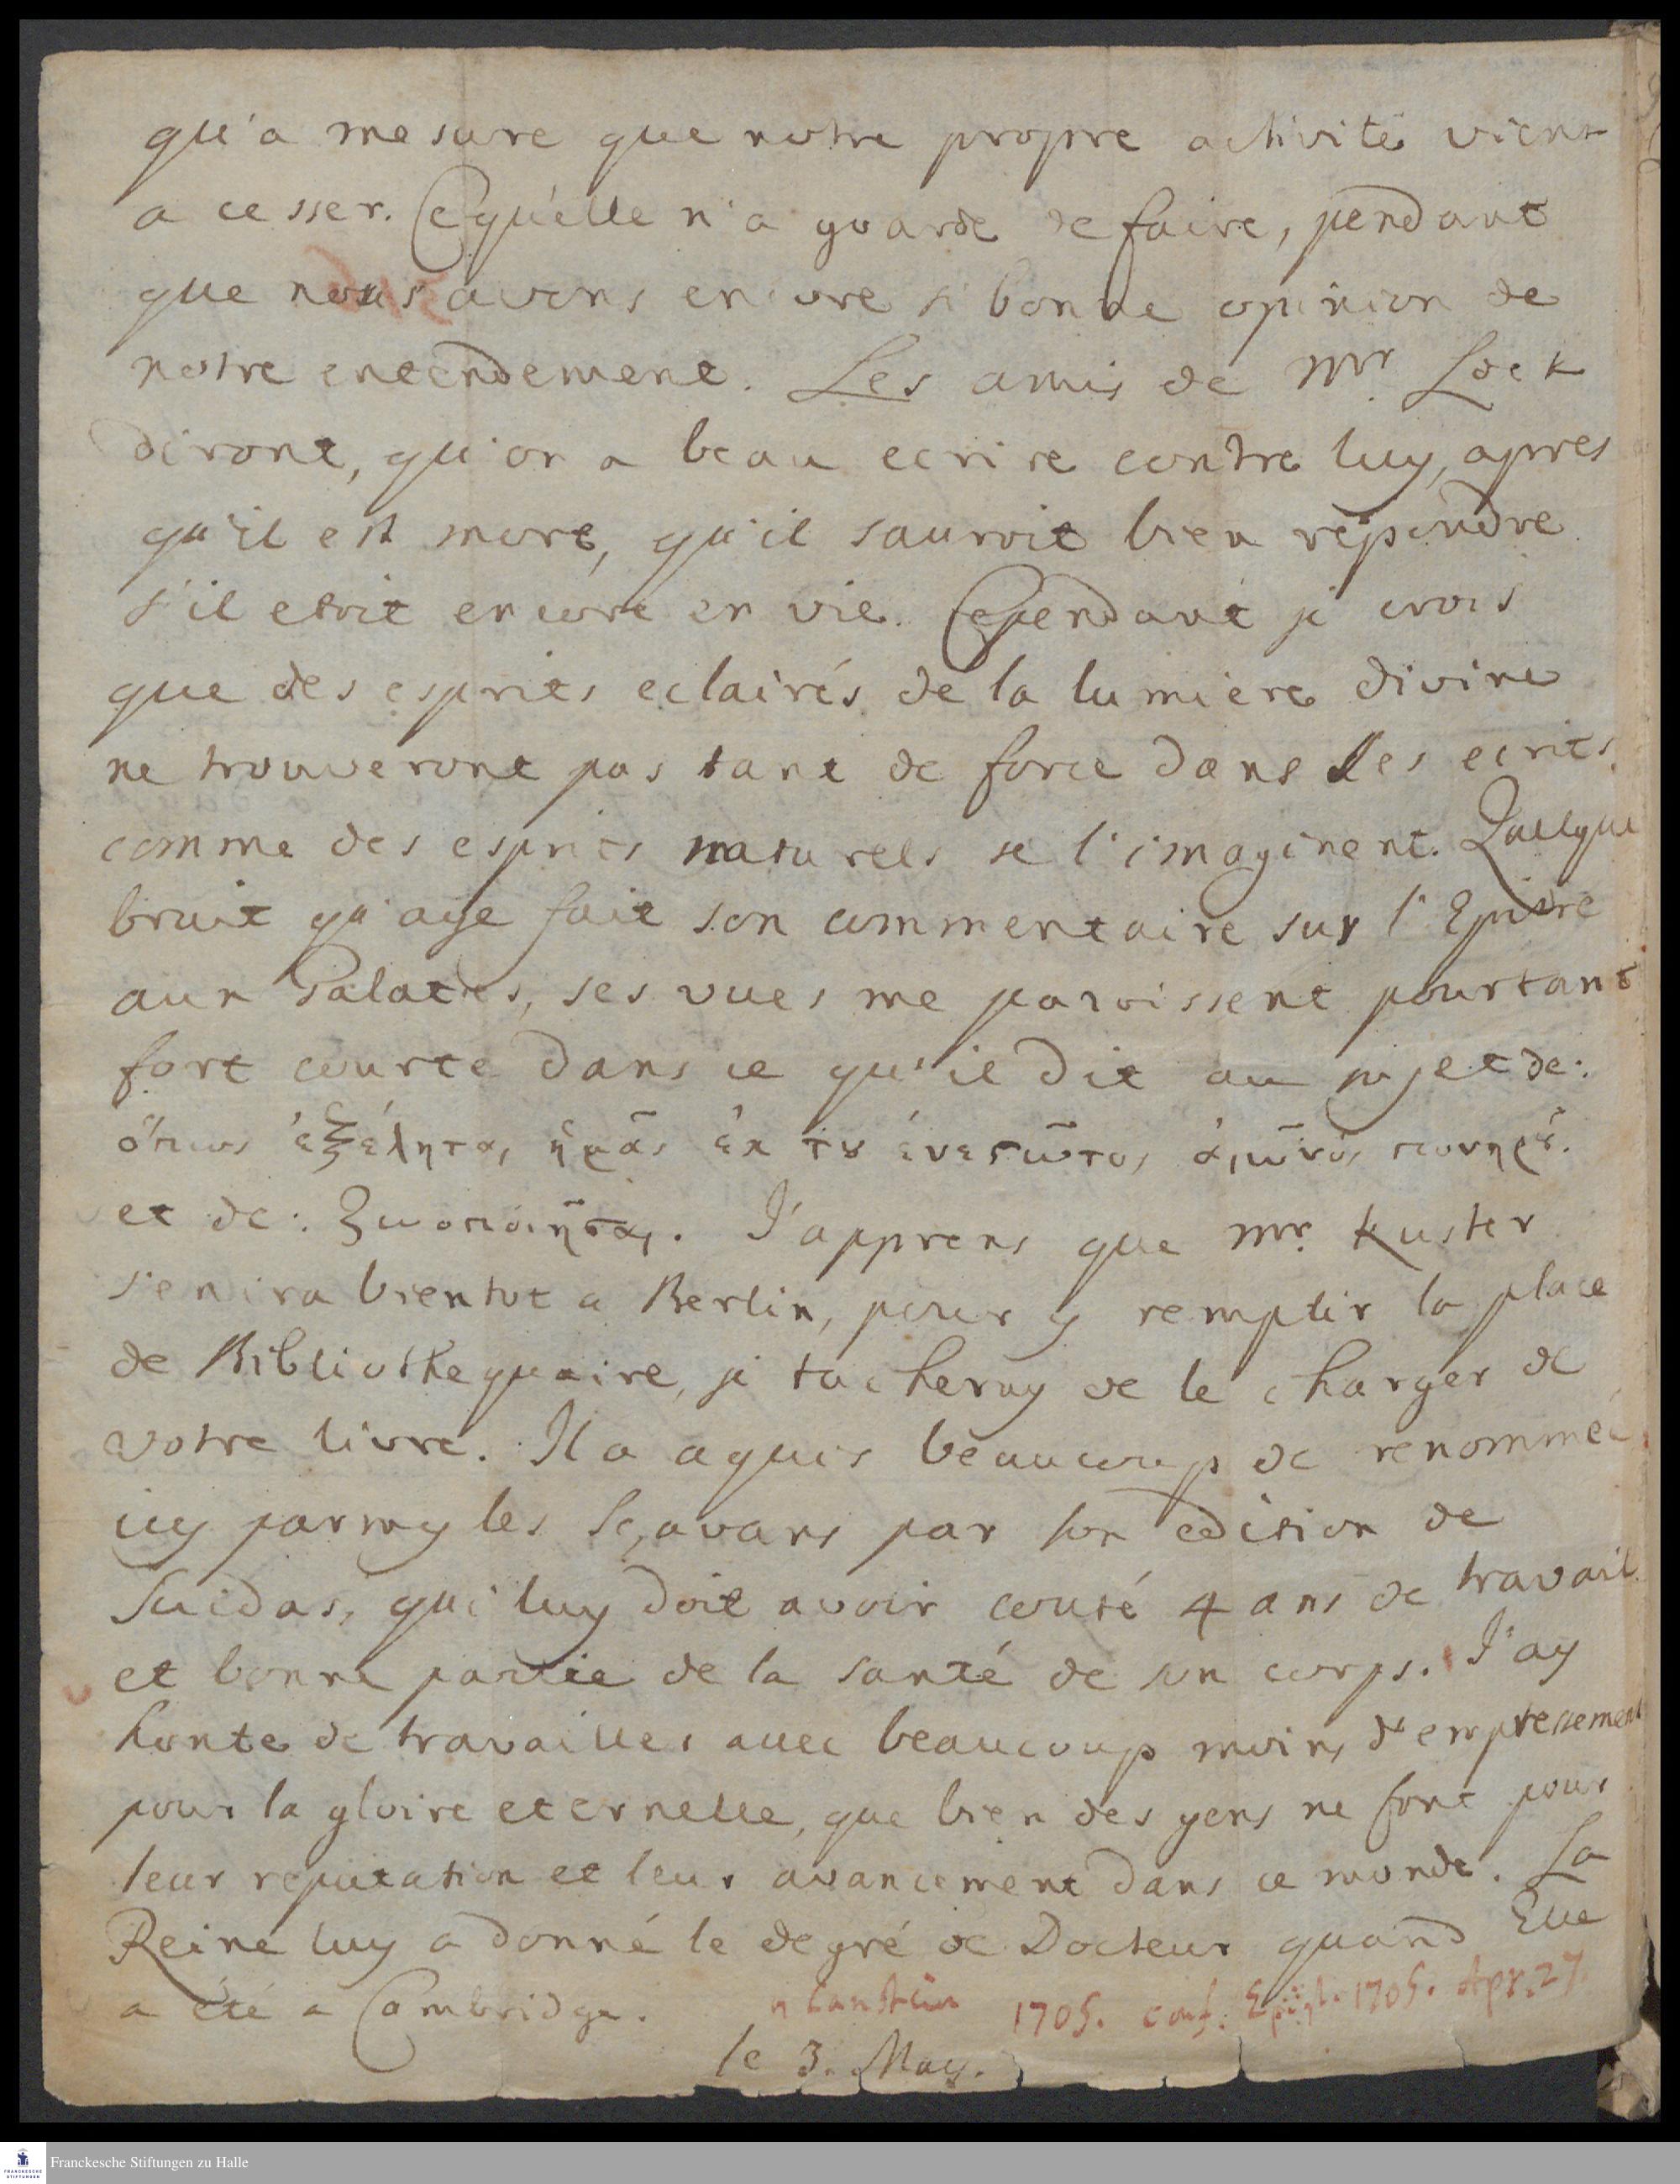 qu'a mesure que notre propre activité vient
a cesser. Cequ'elle n'a guarde de faire, pendant
que nous avons encore si bonne opinion de
notre entendement. Les amis de Mr. Lock
diront, qu'on a beau ecrire contre luy, apres
qu'il est mort, qu'il sauroit bien repondre
s'il etoit encore en vie. Cependant je crois
que des esprits eclairés de la lumiere divine
ne trouveront pas tant de force dans ses ecrits
comme des esprits naturels se l'imaginent. Quelque
bruit qu'aye fait son commentaire sur l'Epitre
aux Galates, ses vues me paroissent pourtant
fort courte dans ce qu'il dit au sujet de:
ὅπως ἐξέληται ἡμᾶς ἐκ τȣ ἐνεστῶτος αἰῶνος πονηρȣ͂.
et de: ζωοποιῆσαι. J'apprens que Mr. Kuster
s'en ira bientot a Berlin, pour y remplir la place
de Bibliothequaire, je tacheray de le charger de
votre livre. Il a aquis beaucoup de renommée
icy parmy les Sçavans par son edition de
Suidas, qui luy doit avoir couté 4 ans de travail
et bonne partie de la santé de son corps. J'ay
honte de travailler avec beaucoup moins d'empressement
pour la gloire eternelle, que bien des gens ne font pour
leur reputation et leur avancement dans ce monde. La
Reine luy a donné le degré de Docteur quand Elle
a été a Cambridge. 1705. conf. Epist. 1705. Apr. 27.
le 3. May.
Franckesche Stiftungen zu Halle
FRANCKESCHE
STIFTUNGEN